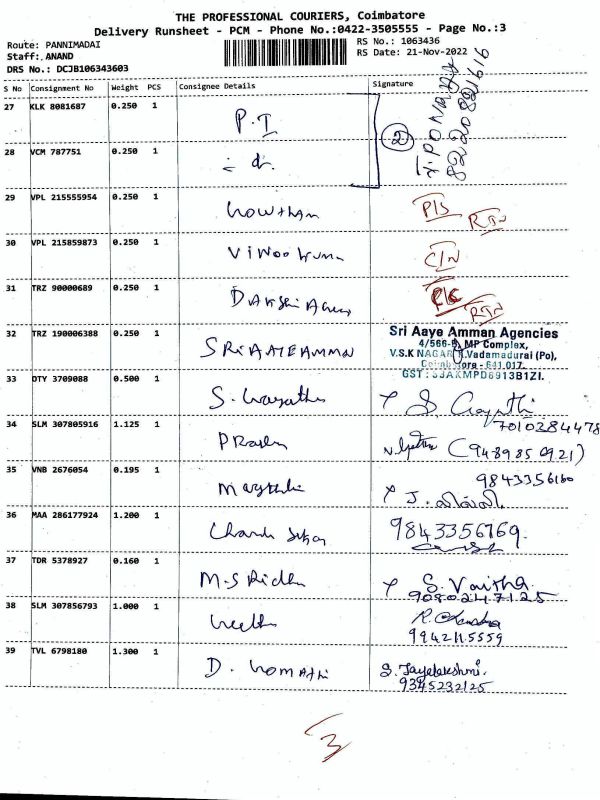 THE PROFESSIONAL COURIERS, Coimbatore
Delivery Runsheet - PCM - Phone No.:0422-3505555 - Page No.:3
Route: PANNIMADAI
RS No.: 1063436
Staff: ANAND
RS Date: 21-Nov-2022
DRS No.: DCJB106343603
S No Consignment No Weight PCS Consignee Details Signature
27 KLK 8081687 0.250 1 P.I
28 VCM 787751 0.250 1
2
29 VPL 215555954 0.250 1 Gowtham
30 VPL 215859873 0.250 1 C/N
31 TRZ 90000689 0.250 1
32 TRZ 190006388 0.250 1 SRI AAYE AMMAN
Sri Aaye Amman Agencies
4/566-B, MP Complex,
V.S.K NAGAR, N.Vadamadurai (Po),
Coimbatore - 641 017.
33 DTY 3709088 0.500 1 S. Gayathri S. Gayathri
7010284478
34 SLM 307805916 1.125 1 (9489850921)
9843356160
35 VNB 2676054 0.195 1
36 MAA 286177924 1.200 1 9843356769
37 TDR 5378927 0.160 1 S. Vanitha
9080247125
38 SLM 307856793 1.000 1
9942115559
39 TVL 6798180 1.300 1 D. Gomathi S. Jayalakshmi
9345232125
3